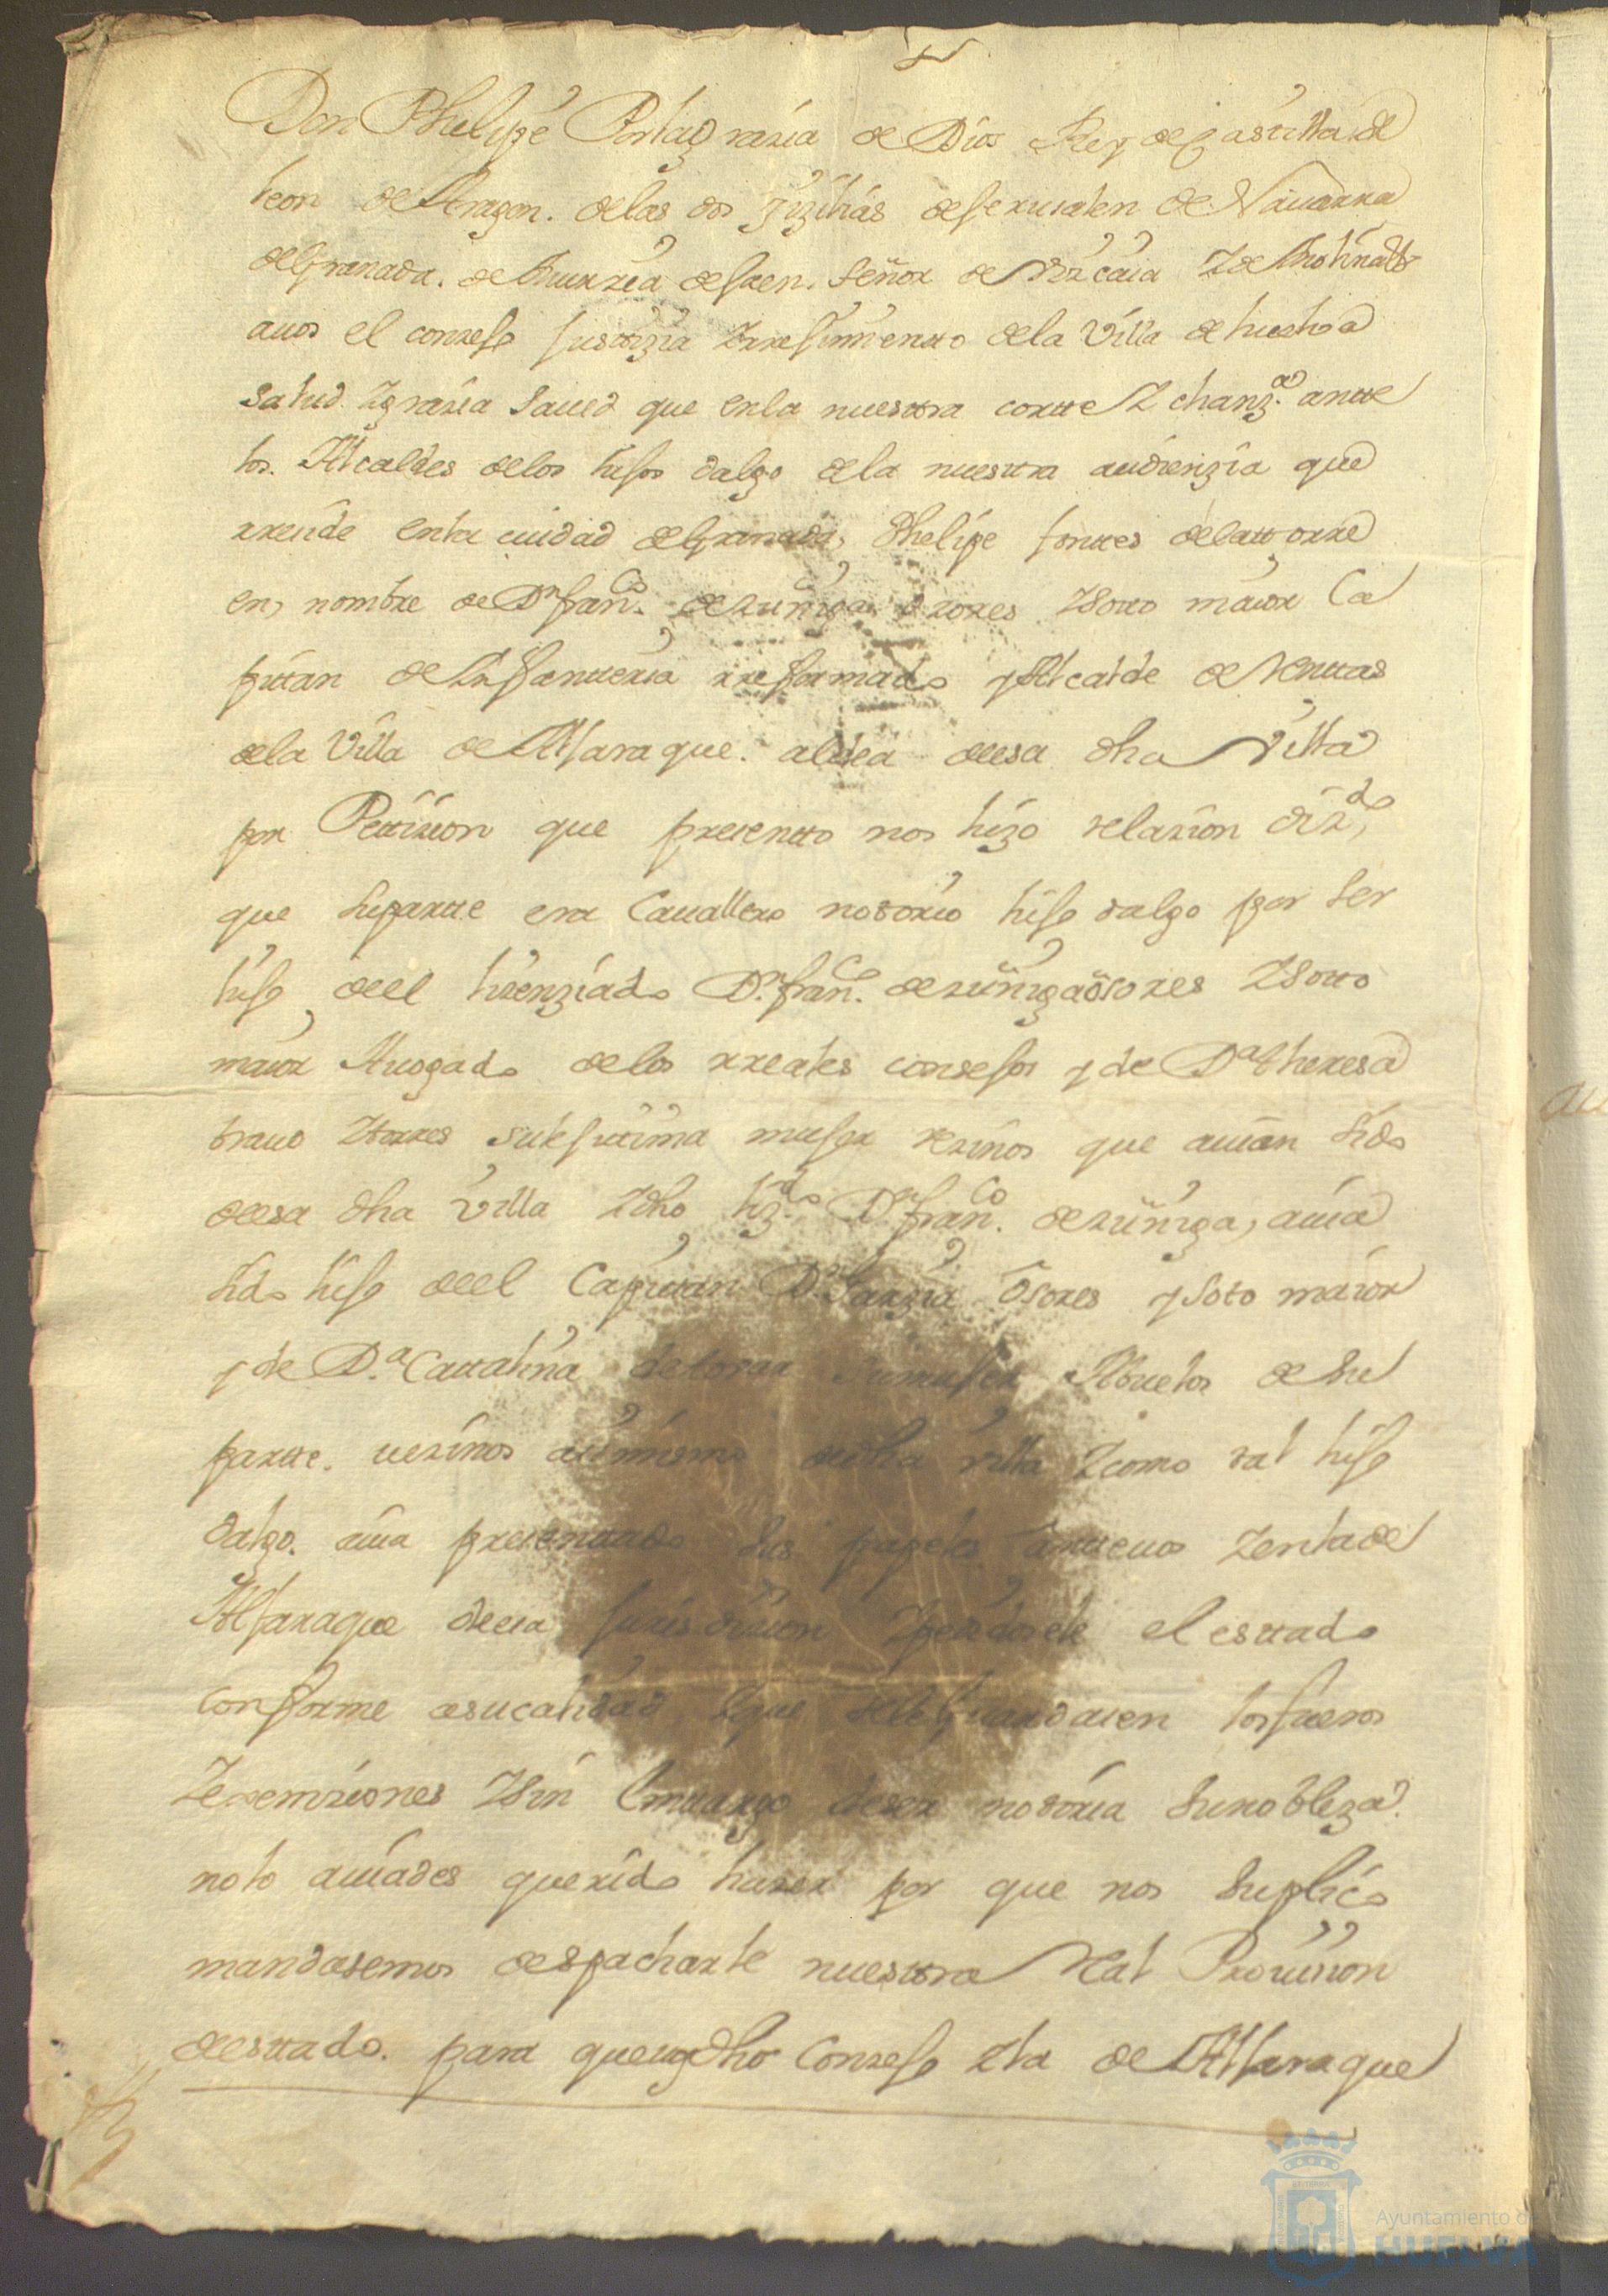 Don Phelipe Por la Grazia de Dios Rey de Castilla de
leon de Aragon. de las dos Zizilias de Jerusalen de Nauarra
de Granada. de Murzia de Jaen. Señor de Vizcaia Y de Molina &
a uos el conzejo Justizia Y rrejimientto de la Villa de huelua
Salud. Y grazia Saued que en la nuestra cortte Y chanz.a antte
los. Alcaldes de los hijos dalgo de la nuestra audienzia que
rreside en la ciudad de Granada, Phelipe fonttes de la ttorre
en, nombre de Dn. fran.co de zuñiga osores Y Sotto maior Ca
pittan de Infantteria rreformado y Alcalde de Venttas
de la Villa de Aljaraque. aldea de esa dha Villa
por Pettizion que presentto nos hizo relazion diz.do
que su partte era Cauallero nottorio hijo dalgo por ser
hijo de el lizenziado Dn. fran.co de zuñiga osores Y Sotto
maior Auogado de los rreales consejos y de D.a theresa
brauo Y torres su lejittima mujer vezinos que auian sido
de esa dha Villa Y dho liz.do Dn. fran.co de zuñiga, auia
sido hijo de el Capittan Dn. Garzia Osores y Soto maior
y de D.a Cattalina de touar su mujer Abuelos de su
partte. uezinos asimismo de dha villa Y como tal hijo
dalgo. auia presenttado sus papeles antte uos Y en la de
Aljaraque de esa jurisdizion Y pedidosele el esttado
conforme a su calidad Y que se le guardasen los fueros
Y exempziones Y sin Embargo de ser nottoria su nobleza.
no lo auiades querido hazer por que nos suplico
mandasemos despacharle nuestra Real Prouision
de esttado. para que ese dho Conzejo Y la de Aljaraque
Ayuntamiento de
HUELVA